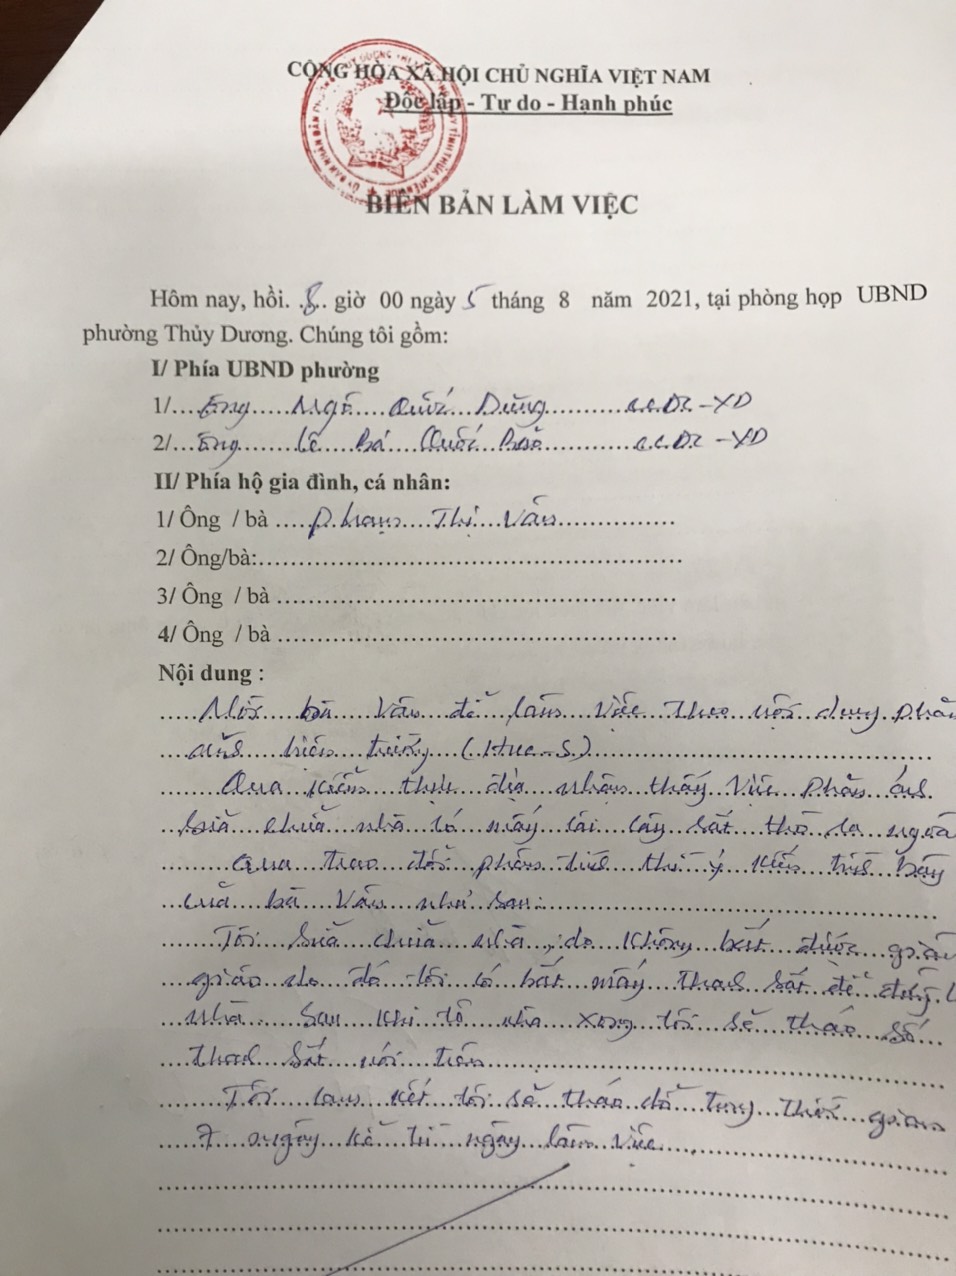 CỘNG HÒA XÃ HỘI CHỦ NGHĨA VIỆT NAM
Độc lập - Tự do - Hạnh phúc
BIÊN BẢN LÀM VIỆC
Hôm nay, hồi. .8.. giờ 00 ngày 5 tháng 8 năm 2021, tại phòng họp UBND
phường Thủy Dương. Chúng tôi gồm:
I/ Phía UBND phường
1/... Ông ..... Ngô .... Quốc ... Dũng .......... C.C.ĐC - XD
2/... Ông ..... Lê ... Bá ... Quốc ... Bảo ............ C.C.ĐC - XD
II/ Phía hộ gia đình, cá nhân:
1/ Ông / bà .... Phạm .... Thị ... Vân ...............
2/ Ông/bà:......................................................
3/ Ông / bà ...................................................
4/ Ông / bà ...................................................
Nội dung :
Mời bà Vân để làm việc theo nội dung phản
ánh hiện trường (Hue-S)
Qua kiểm thực địa nhận thấy việc phản ánh
sửa chữa nhà có mấy cái cây sắt thò ra ngoà
Qua trao đổi phân tích thì ý kiến trình bày
của bà Vân như sau:
Tôi sửa chữa nhà, do không bắt được giàn
giáo do đó tôi có bắt mấy thanh sắt để đứng
nhà. Sau khi tô nhà xong tôi sẽ tháo số
thanh sắt nói trên
Tôi cam kết tôi sẽ tháo dỡ trong thời gian
7 ngày kể từ ngày làm việc